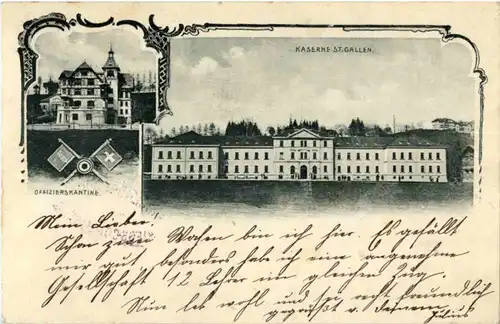 KASERNE ST. GALLEN.
OFFIZIERSKANTINE.
Mein Lieber!
Schon zwei Wochen bin ich hier. Es gefällt
mir gut besonders habe ich eine angenehme
Gesellschaft 12 Lehrer im gleichen Zug.
Nun leb wohl und sei recht freundlich
gegrüßt v. Deinem
Julius